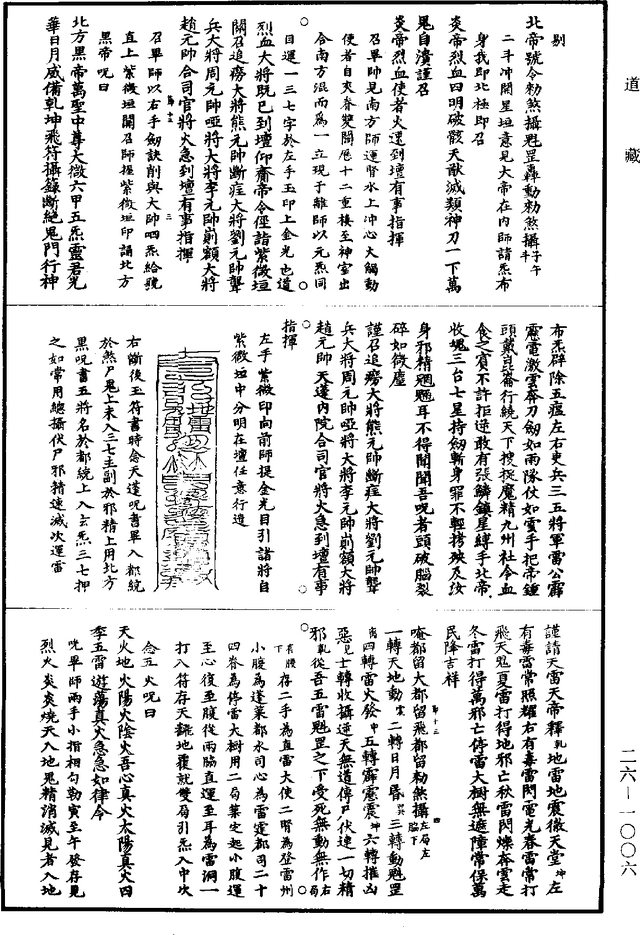 道藏
別
北帝號令勑煞攝魁罡轟動勑煞攝子午斗
二斗沖開星垣意見大帝在內師請炁布
身我即北極即召
炎帝烈血四明破骸天猷滅類神刀一下萬
鬼自潰謹召
炎帝烈血使者火速到壇有事指揮
召畢師見南方師運腎水上沖心火觸動
使者自夾脊雙關歷十二重樓至神室出
合南方混而為一立現于離師以元炁同
目運一三七字於左手玉印上金光也道
烈血大將既已到壇仰齎帝令徑詣紫微垣
關召追癆大將熊元帥斷瘧大將劉元帥聾
兵大將周元帥啞將大將李元帥崩額大將
趙元帥合司官將火急到壇有事指揮
召畢師以右手劍訣削與大帥呬炁給號
直上紫微垣關召師握紫微垣印誦北方
黑帝呪曰
北方黑帝萬聖中尊大微六甲五炁靈君光
華日月威備乾坤飛符攝籙斷絕鬼門行神
布炁辟除五瘟左右吏兵三五將軍雷公霹
靂電激雲奔刀劍如雨隊仗如雲手把帝鍾
頭戴崑崙行繞天下搜捉魔精九州社令血
食之賓不許拒逆敢有張鱗鑊星縛手北帝
收魂三台七星持劍斬身罪不輕拷殃及汝
身邪精魍魎耳不得聞聞吾呪者頭破腦裂
碎如微塵
謹召追癆大將熊元帥斷瘧大將劉元帥聾
兵大將周元帥啞將大將李元帥崩額大將
趙元帥天蓬內院合司官將火急到壇有事
指揮
左手紫微印向前師提金光目引諸將自
紫微垣中分明在壇任意行遣
右斷後玉符書時念天蓬呪書畢入都統
於煞尸鬼上朱入三七圭副於邪精上用北方
黑呪書五將名於都統上入玄炁三七押
之如常用總攝伏尸邪精速滅次運雷
謹請天雷天帝釋乾地雷地震徹天堂坤左
有毒雷常照耀右有毒雷閃電光春雷常打
飛天鬼夏雷打得地邪亡秋雷閃爍奔雲走
冬雷打得萬邪亡停雷大樹無遮障常保萬
民降吉祥
唵都留大都留飛都留勑煞攝左局左脇下
一轉天地動二轉日月昏巽三轉動魁罡
四轉雷火發中五轉霹靂震坤六轉摧凶
惡士轉收攝逆天無道傳尸伏連一切精
邪乾從吾五雷魁罡之下受死無動無作右局
存二手為直雷大使二臂為登雷州
小腹為蓬萊都水司心為雷霆都司二十
四脊為停雷大樹用二局築定起小腹運
至心復至腹從兩脇直運至耳為雷洞一
打入符存天竅地覆就雙局引炁入中次
念五火呪曰
天火地火陽火陰火吾心真火太陽真火四
季五雷遊蕩真火急急如律令
呪畢師兩手小指相勾勒寅至午發存見
烈火炎炎燒天入地鬼精消滅見者入地
二六—一〇〇六